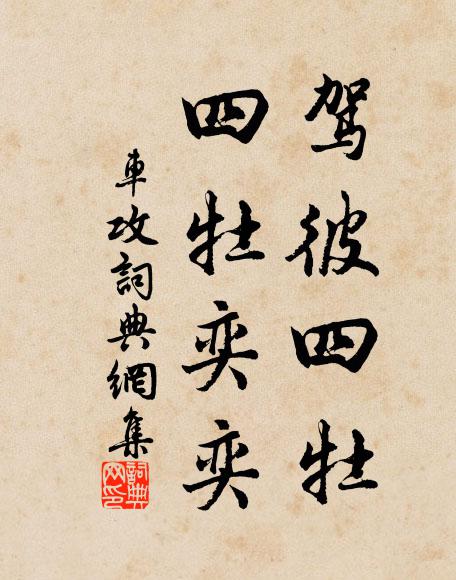 駕彼四牡
四牡奕奕
車攻詞典網集
詞典
网印